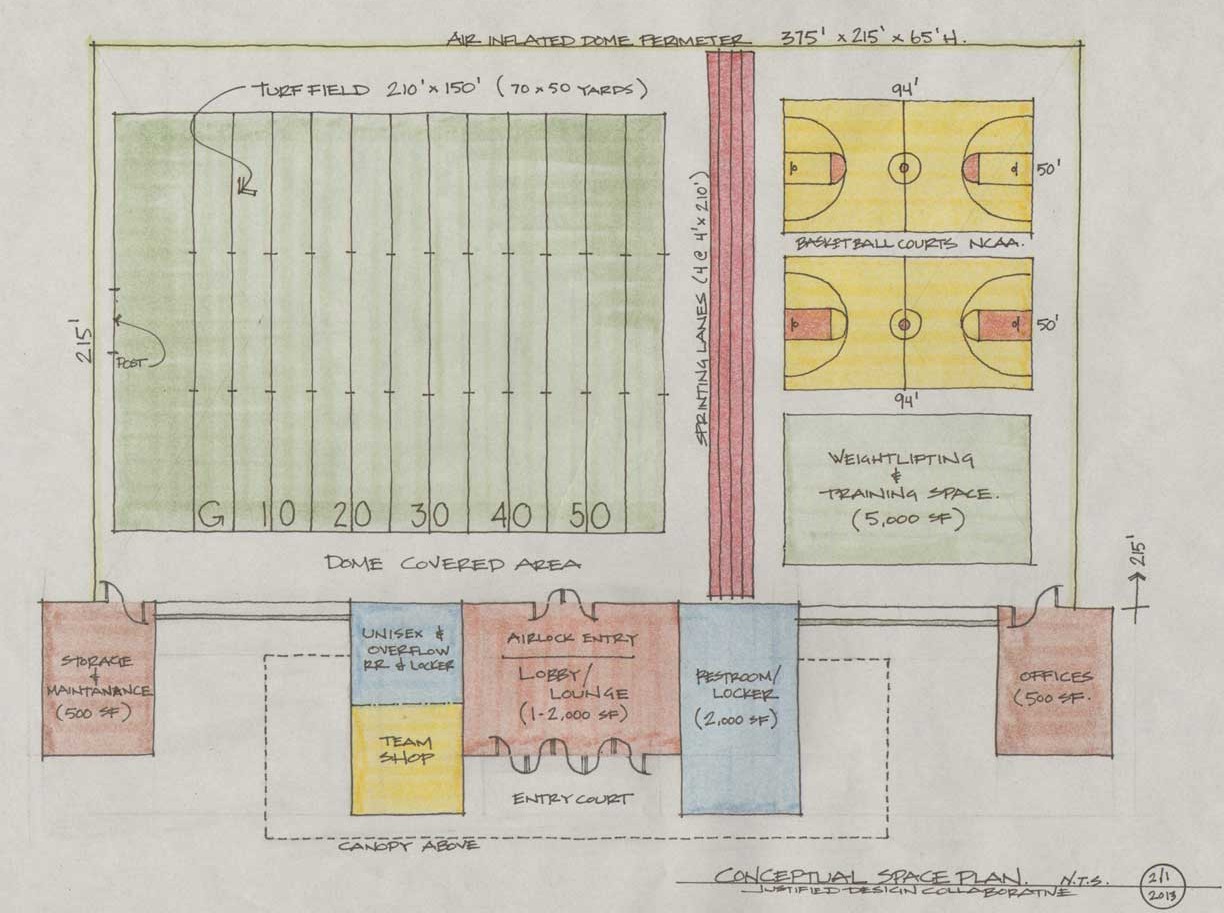 AIR INFLATED DOME PERIMETER 375' x 215' x 65' H.
TURF FIELD 210' x 150' ( 70 x 50 YARDS )
94'
50'
BASKETBALL COURTS NCAA.
50'
94'
SPRINTING LANES (4 @ 4' x 210')
215'
POST
WEIGHTLIFTING
&
TRAINING SPACE.
(5,000 SF)
G 10 20 30 40 50
DOME COVERED AREA
215'
STORAGE
&
MAINTANANCE
(500 SF)
UNISEX &
OVERFLOW
RR & LOCKER
TEAM
SHOP
AIRLOCK ENTRY
LOBBY/
LOUNGE
(1-2,000 SF)
RESTROOM/
LOCKER
(2,000 SF)
OFFICES
(500 SF.
ENTRY COURT
CANOPY ABOVE
CONCEPTUAL SPACE PLAN. N.T.S.
JUSTIFIED DESIGN COLLABORATIVE
2/1
2013